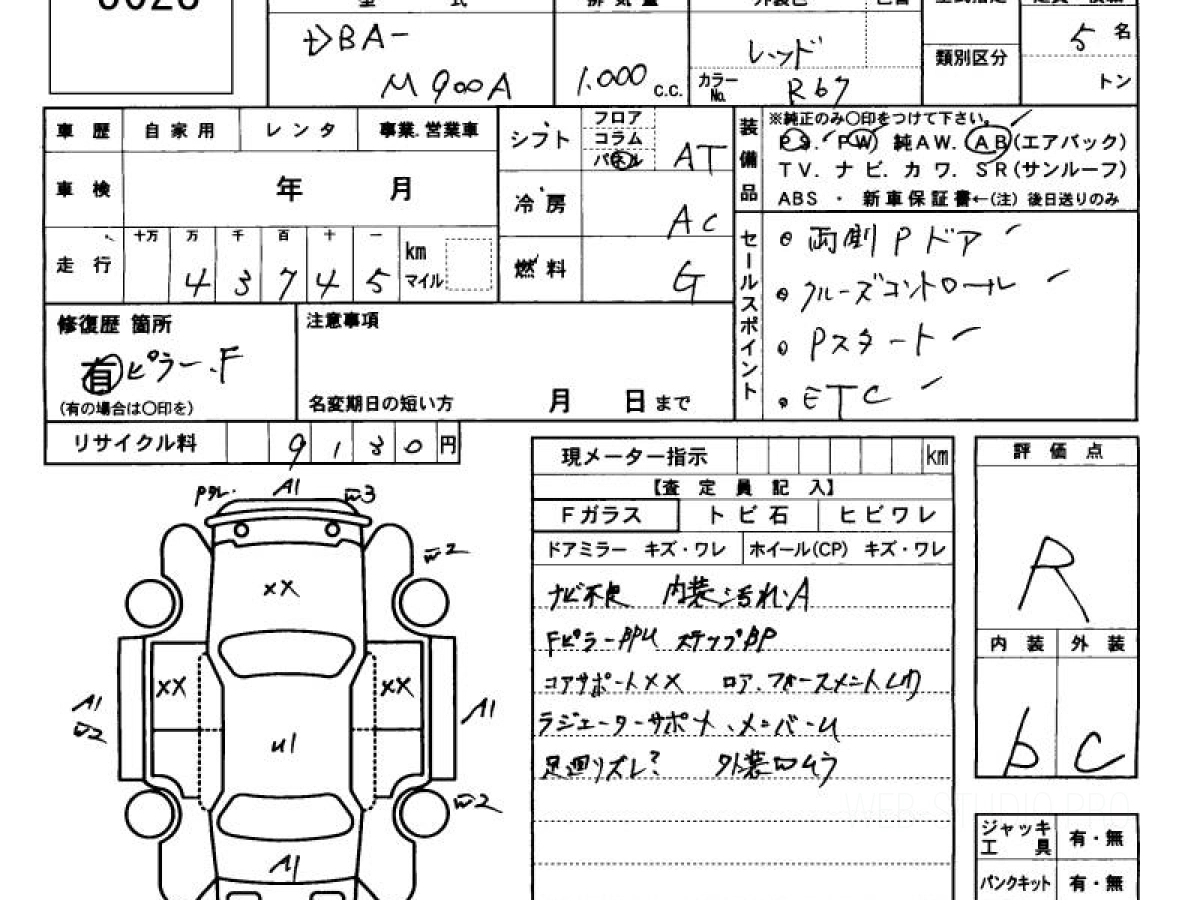 DBA-
M900A
1.000 c.c.
レッド
カラーNo. R67
類別区分
5 名
トン
車歴 自家用 レンタ 事業.営業車
車検 年 月
走行 十万 万 千 百 十 一
4 3 7 4 5 km マイル
シフト フロア コラム パネル AT
冷房 AC
燃料 G
装備品
※純正のみ〇印をつけて下さい。
PS. PW 純AW. AB(エアバック)
TV. ナビ. カワ. SR(サンルーフ)
ABS ・ 新車保証書←(注) 後日送りのみ
セールスポイント
両側Pドア
クルーズコントロール
Pスタート
ETC
修復歴 箇所
有 ピラー.F
(有の場合は〇印を)
注意事項
名変期日の短い方 月 日まで
リサイクル料 9 1 3 0 円
現メーター指示 km
【査定員記入】
Fガラス トビ石 ヒビワレ
ドアミラー キズ・ワレ ホイール(CP) キズ・ワレ
ナビ不良 内装汚れ.A
Fピラー ステップBP
コアサポートXX ロア.フォースメント
ラジエーターサポート、メンバーU
足廻りズレ? 外装ムラ
評価点
R
内装 外装
b C
ジャッキ 工具 有・無
パンクキット 有・無
A1
W3
W2
XX
XX XX
A1
W2
A1
U1
W2
A1
WEB-STUDIO.PRO